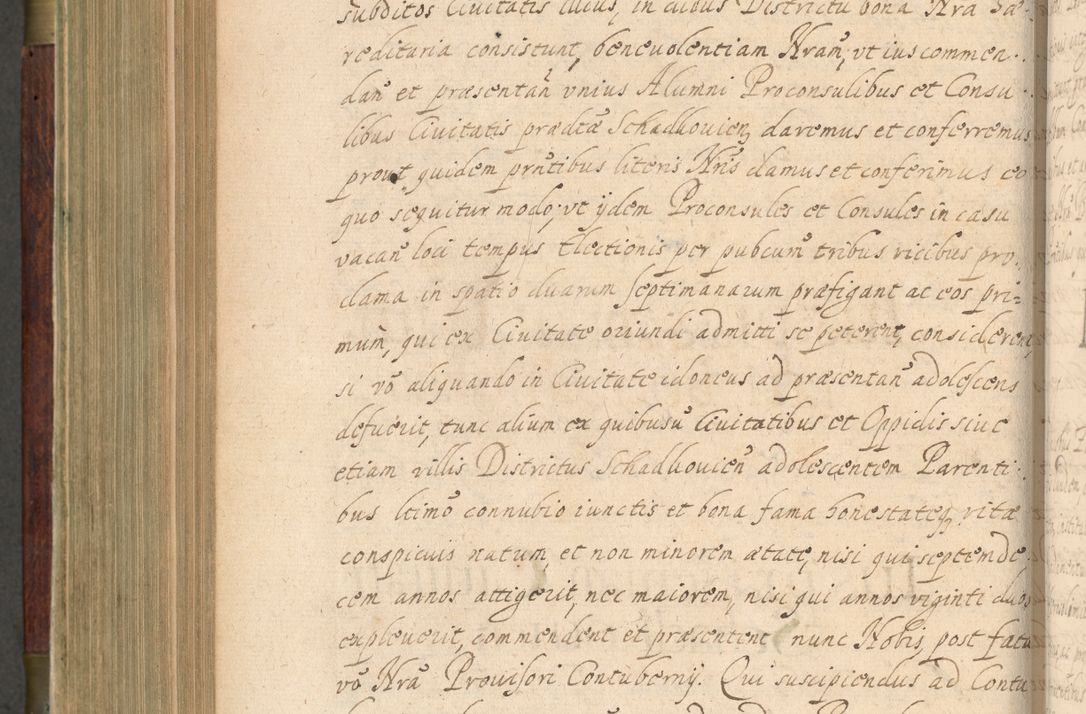 subditos Ciuitatis illius, in cuius Districtu bona Nra hæ-
reditaria consistunt, beneuolentiam Nram̃, vt ius commen-
dañ et præsentañ vnius Alumni Proconsulibus et Consu
libus Ciuitatis prædtæ Schadkouien̄ daremus et conferremus
prout quidem pñtibus literis Nris damus et conferimus eo
quo sequitur modo; vt ijdem Proconsules et Consules in casu
vacañ loci tempus Electionis per pubcum̃ tribus vicibus pro
clama in spatio duarum septimanarum præfigant ac eos pri=
mũm, qui ex Ciuitate oriundi admitti se peterent, considerent,
si võ aliquando in Ciuitate idoneus ad præsentañ adolescens
defuerit, tunc alium ex quibusũ Ciuitatibus et Oppidis siue
etiam villis Districtus Schadkouieñ adolescentem Parenti-
bus ltimõ connubio iunctis et bona fama honestateq vitæ
conspicuis natum, et non minorem ætate, nisi qui septemde
cem annos attigerit, nec maiorem, nisi qui annos viginti duos
expleuerit, commendent et præsentent nunc Nobis, post fata
võ Nrã Prouisori Contubernij. Qui suscipiendus ad Contu